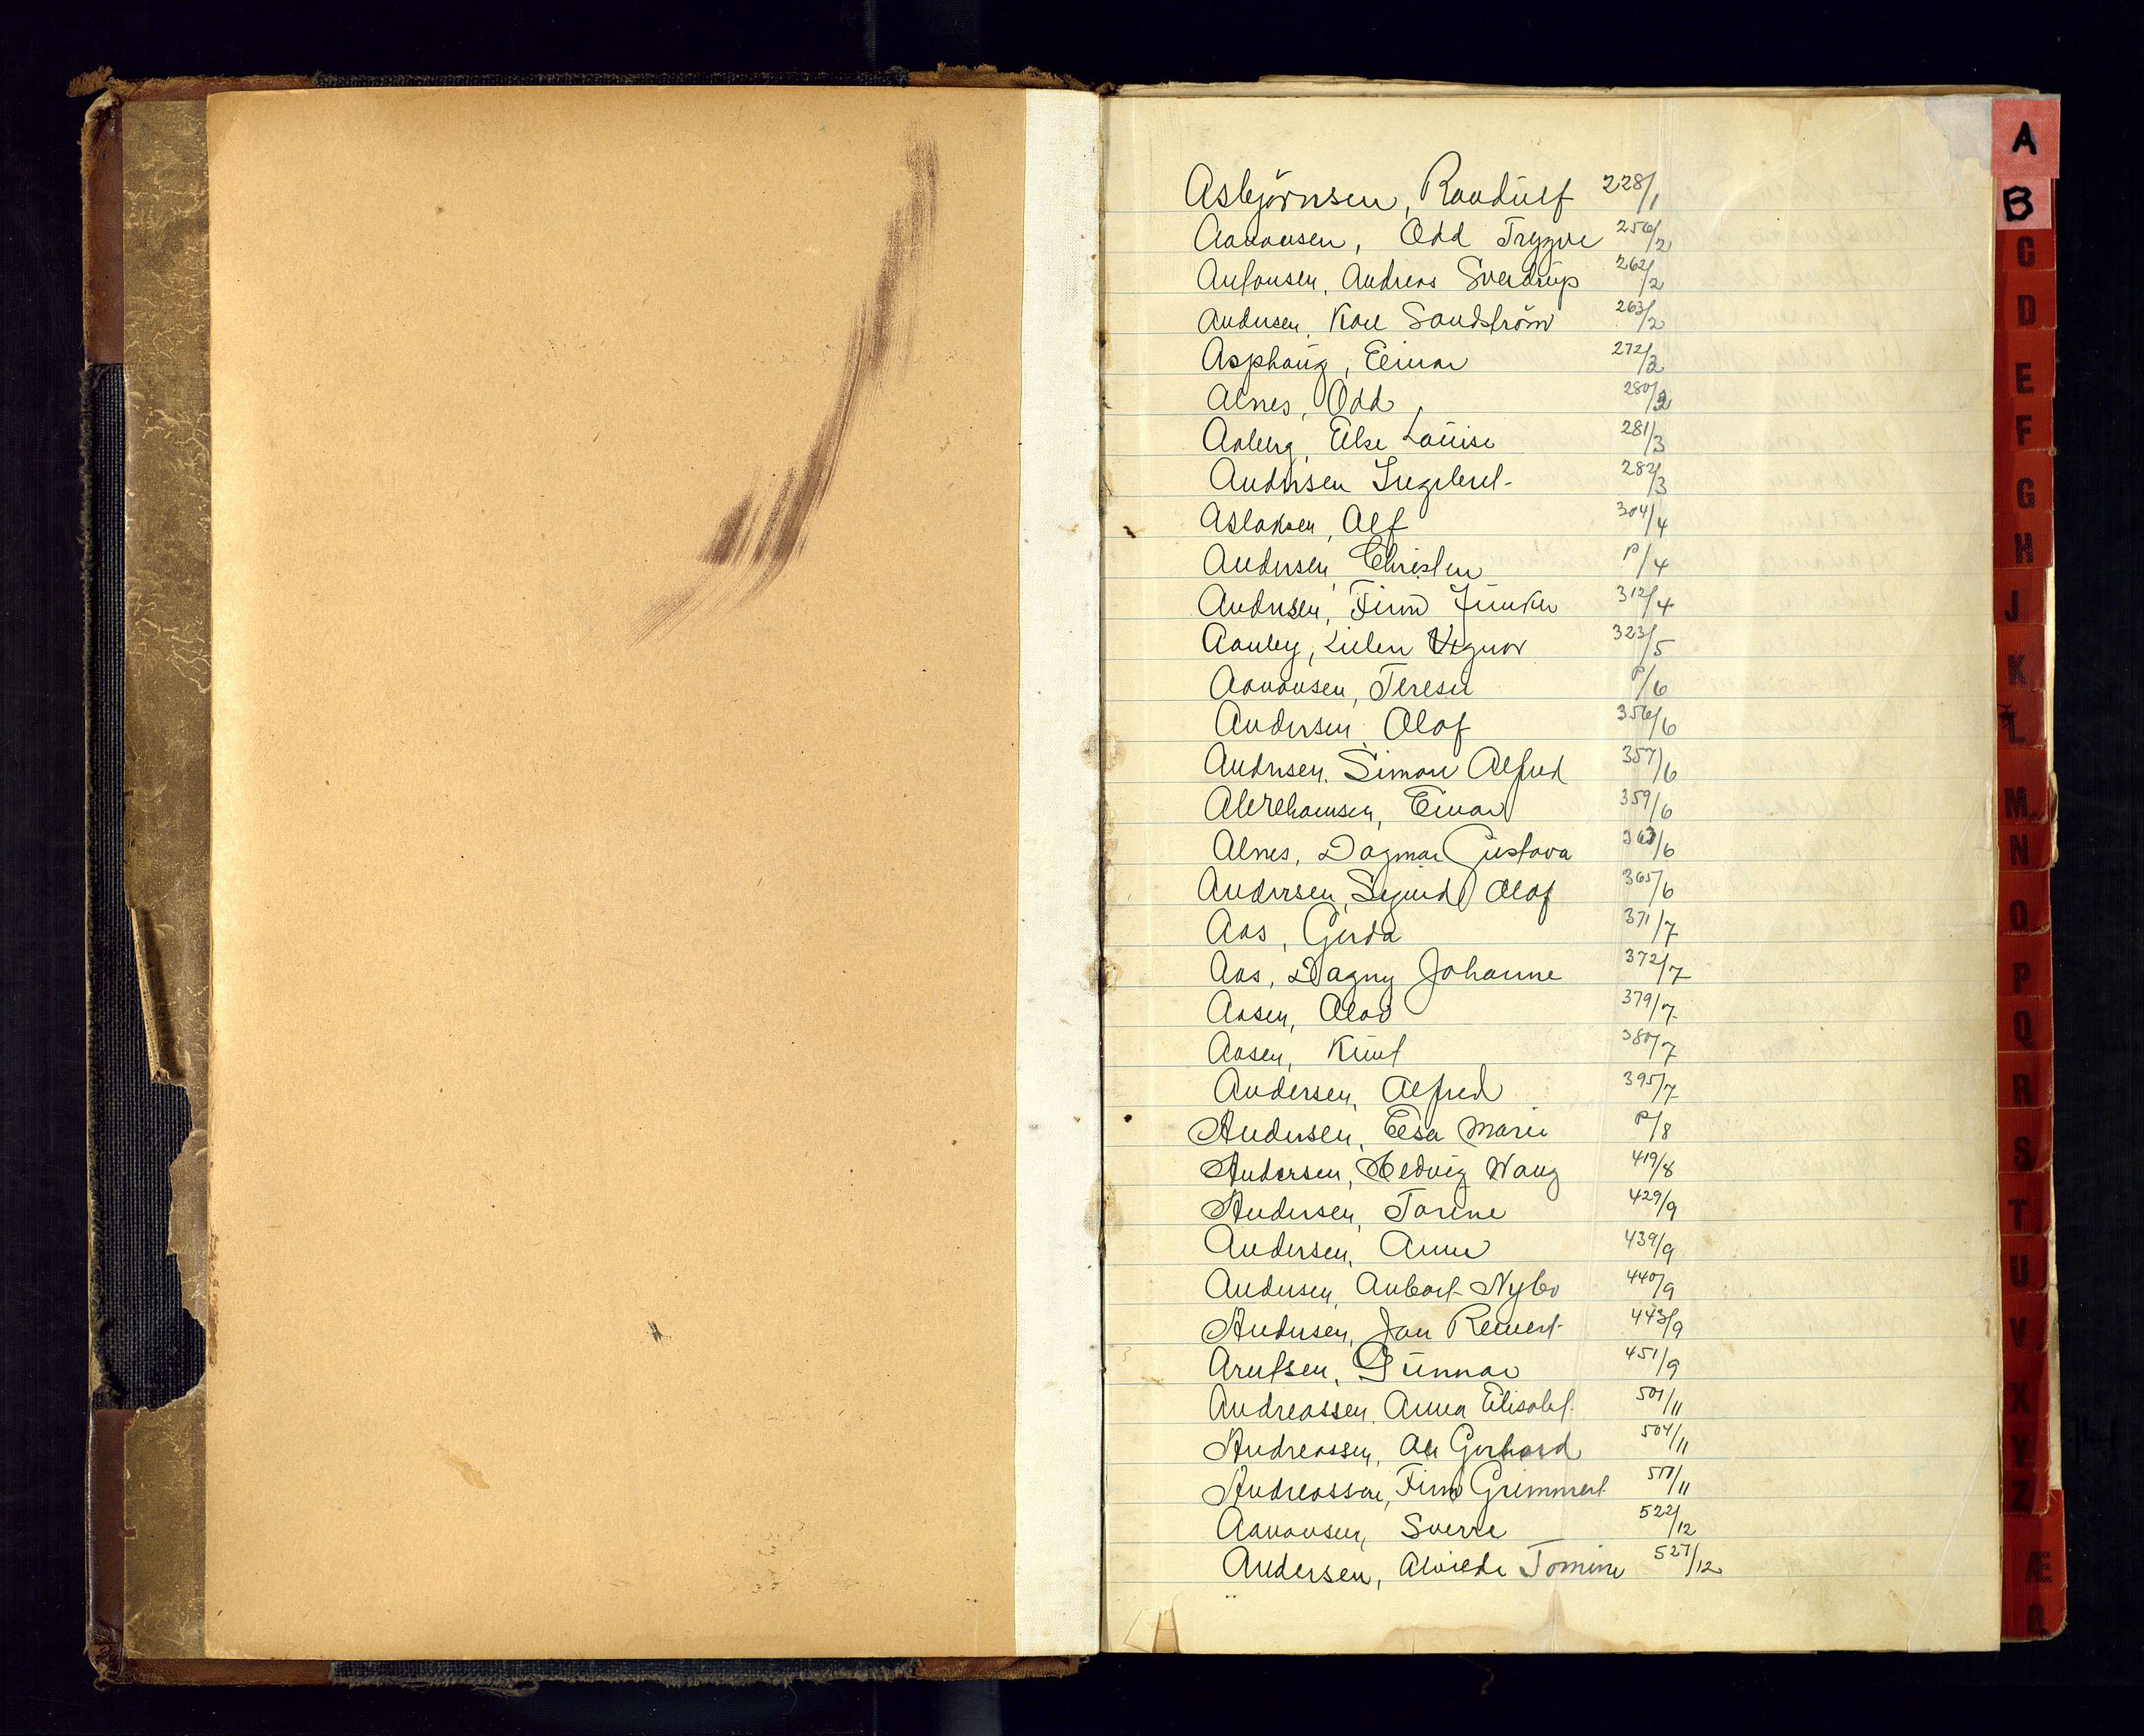 Asbjörnsen, Randulf 228/1
Aanonsen, Odd Trygve 256/2
Antonsen, Andreas Sverdrup 262/2
Andersen, Kåre Sandström 263/2
Asphaug, Einar 272/2
Alnes, Odd 280/2
Aaberg, Else Louise 281/3
Andersen Ingebret 282/3
Aslaksen, Alf 304/4
Andersen, Christen P/4
Andersen, Finn Junker 312/4
Aanby, 323/5
Aanonsen, Terese P/6
Andersen, Olaf 356/6
Andersen, Simon Alfred 357/6
Abrahamsen, Einar 359/6
Alnes, Dagmar Gustava 363/6
Andersen, Sigurd Olaf 365/6
Aas, Gerda 371/7
Aas, Dagny Johanne 372/7
Aasen, Olav 379/7
Aasen, Knut 380/7
Andersen, Alfred 395/7
Andersen, Elsa Marie P/8
Andersen, Hedvig Wang 419/8
Andersen, Torine 429/9
Andersen, Anne 439/9
Andersen, Anbart Nybo 440/9
Andersen, Jan Reinert 443/9
Arntsen, Gunnar 451/9
Andreassen, Anna Elisabet 501/11
Andreassen, Ole Gerhard 504/11
Andreassen, Finn Grimmert 511/11
Aanonsen, Sverre 522/12
Andersen, Alvilde Tomine 527/12
A
B
C
D
E
F
G
H
J
K
L
M
N
O
P
Q
R
S
T
U
V
X
Y
Z
Æ